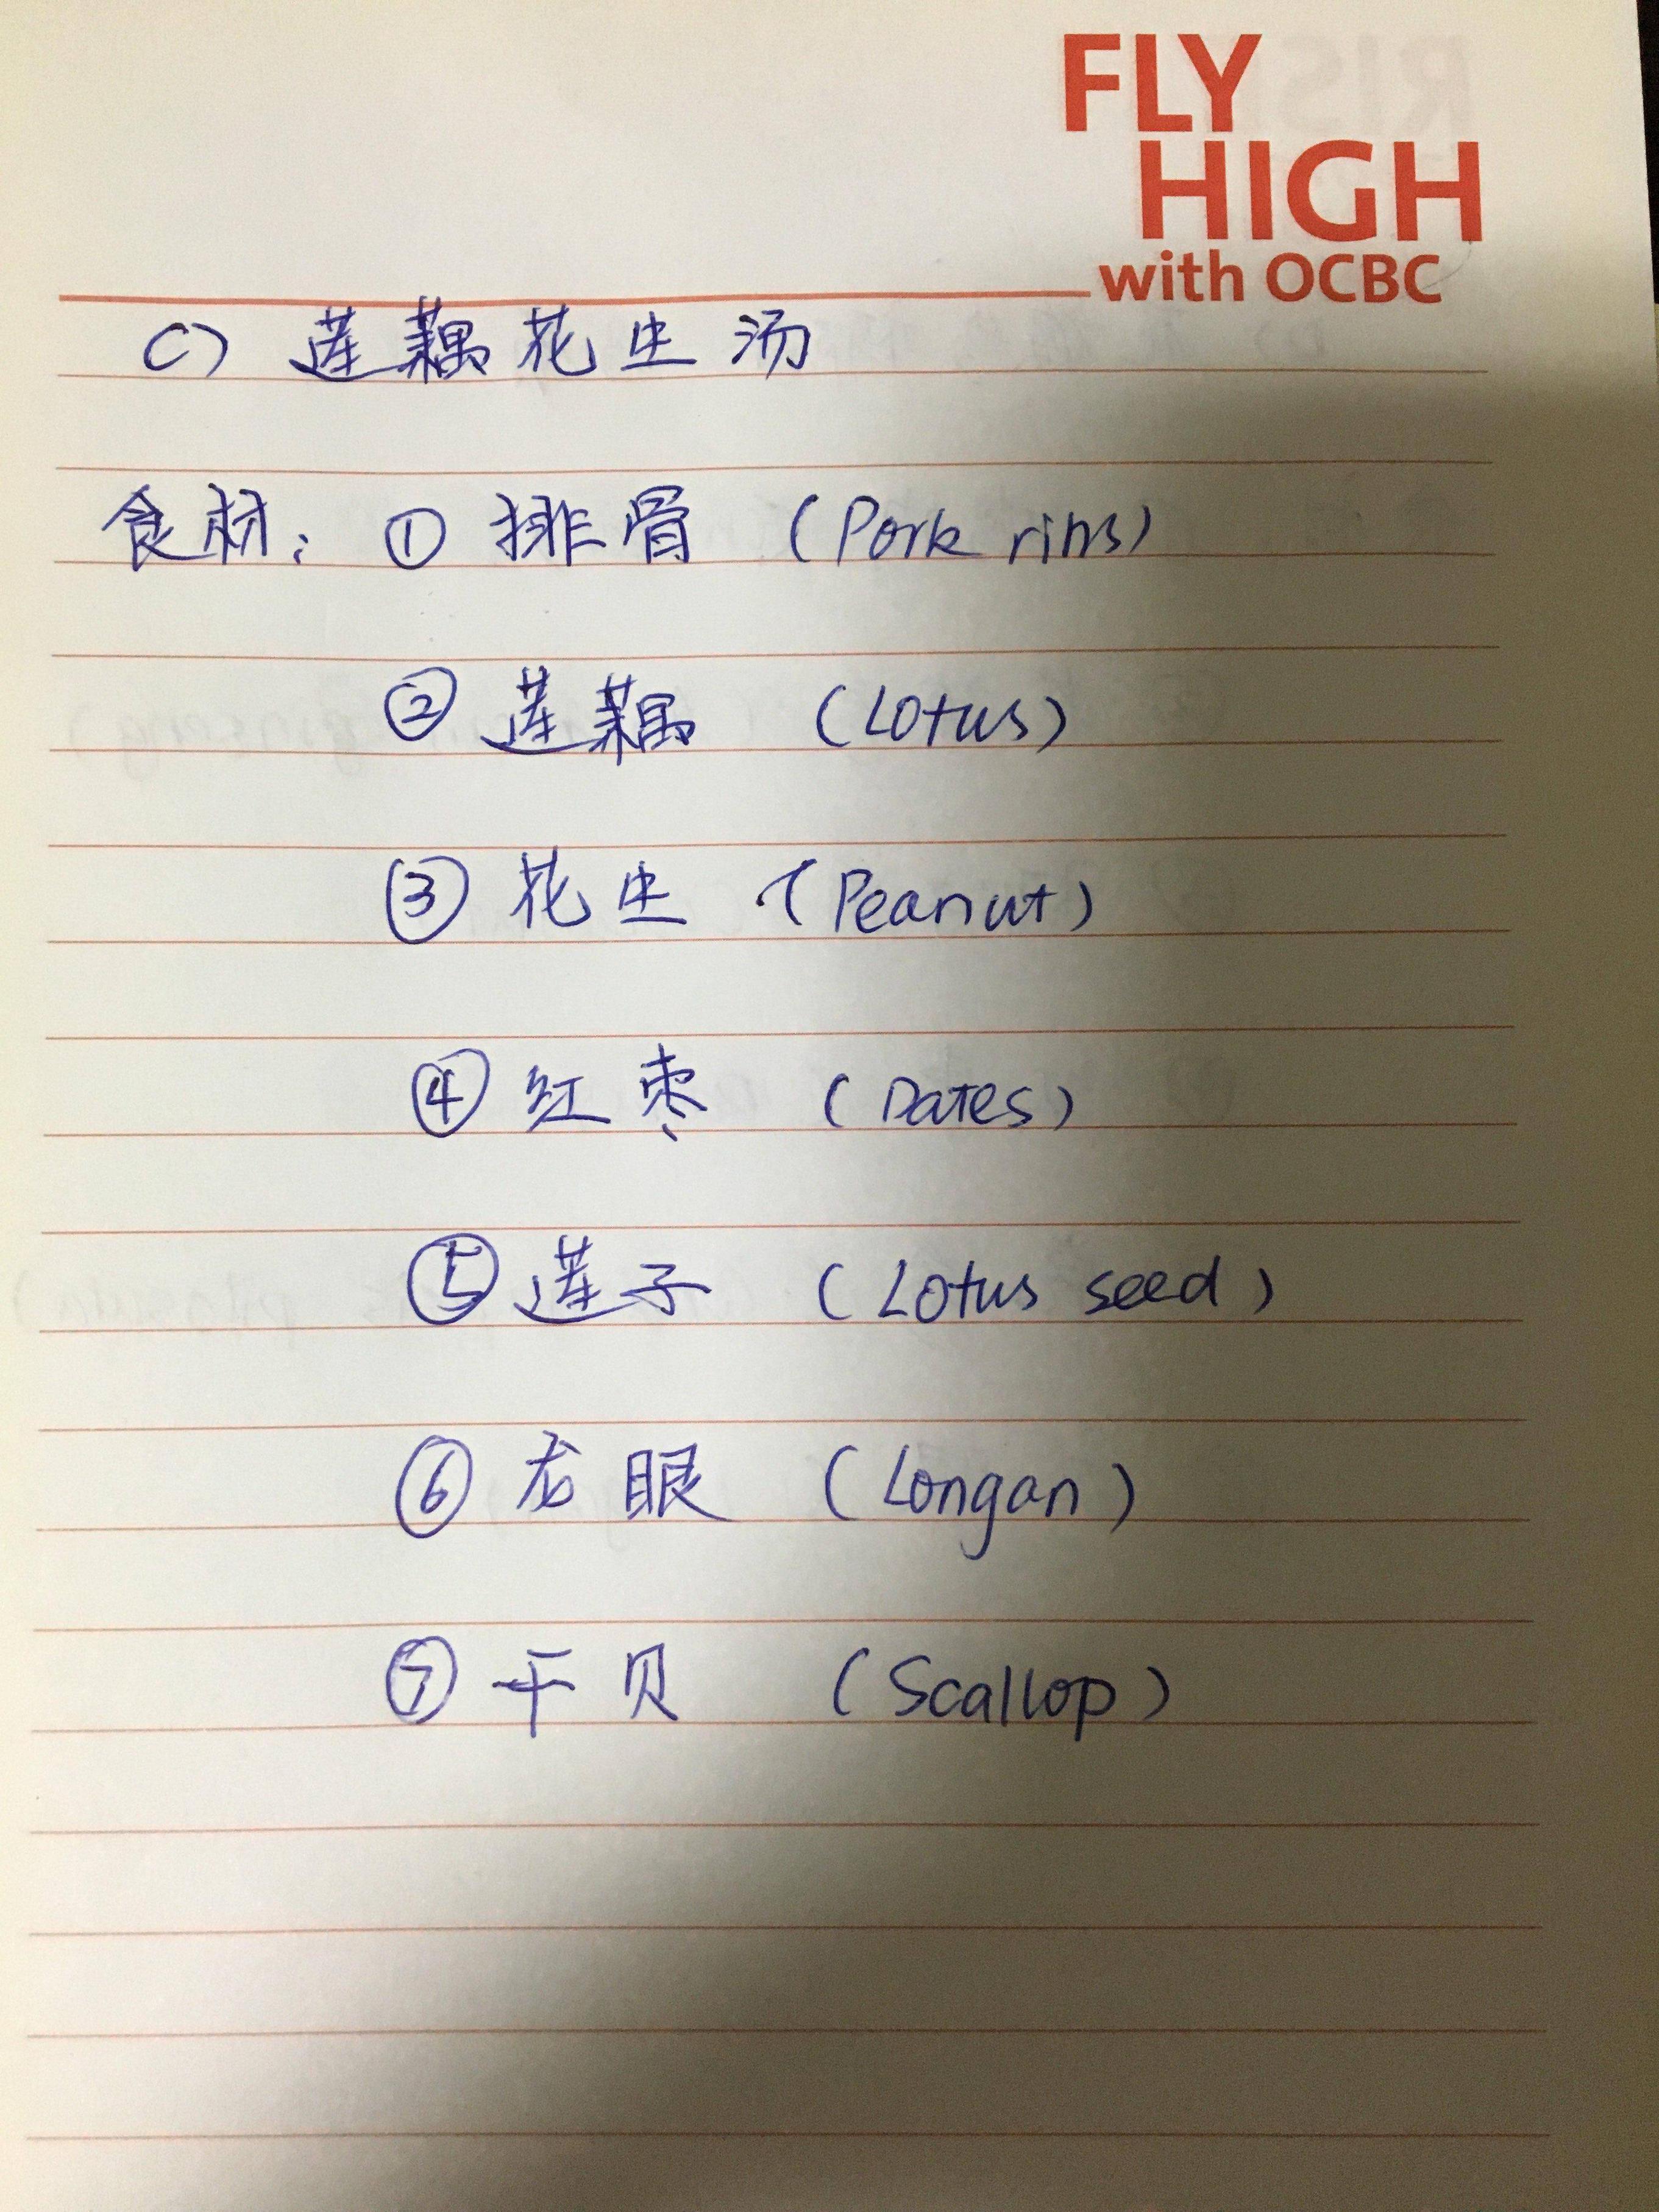 FLY
HIGH
with OCBC
C) 莲藕花生汤
食材: ① 排骨 (Pork ribs)
② 莲藕 (Lotus)
③ 花生 (Peanut)
④ 红枣 (Dates)
⑤ 莲子 (Lotus seed)
⑥ 龙眼 (Longan)
⑦ 干贝 (Scallop)